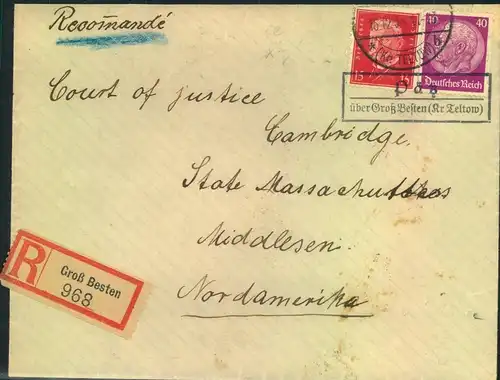 Recomandé
15
40 40
Deutsches Reich
über Groß Besten (Kr. Teltow)
Court of justice
Cambridge.
State Massachuttes
Middlesen
Nordamerika
R
Groß Besten
968